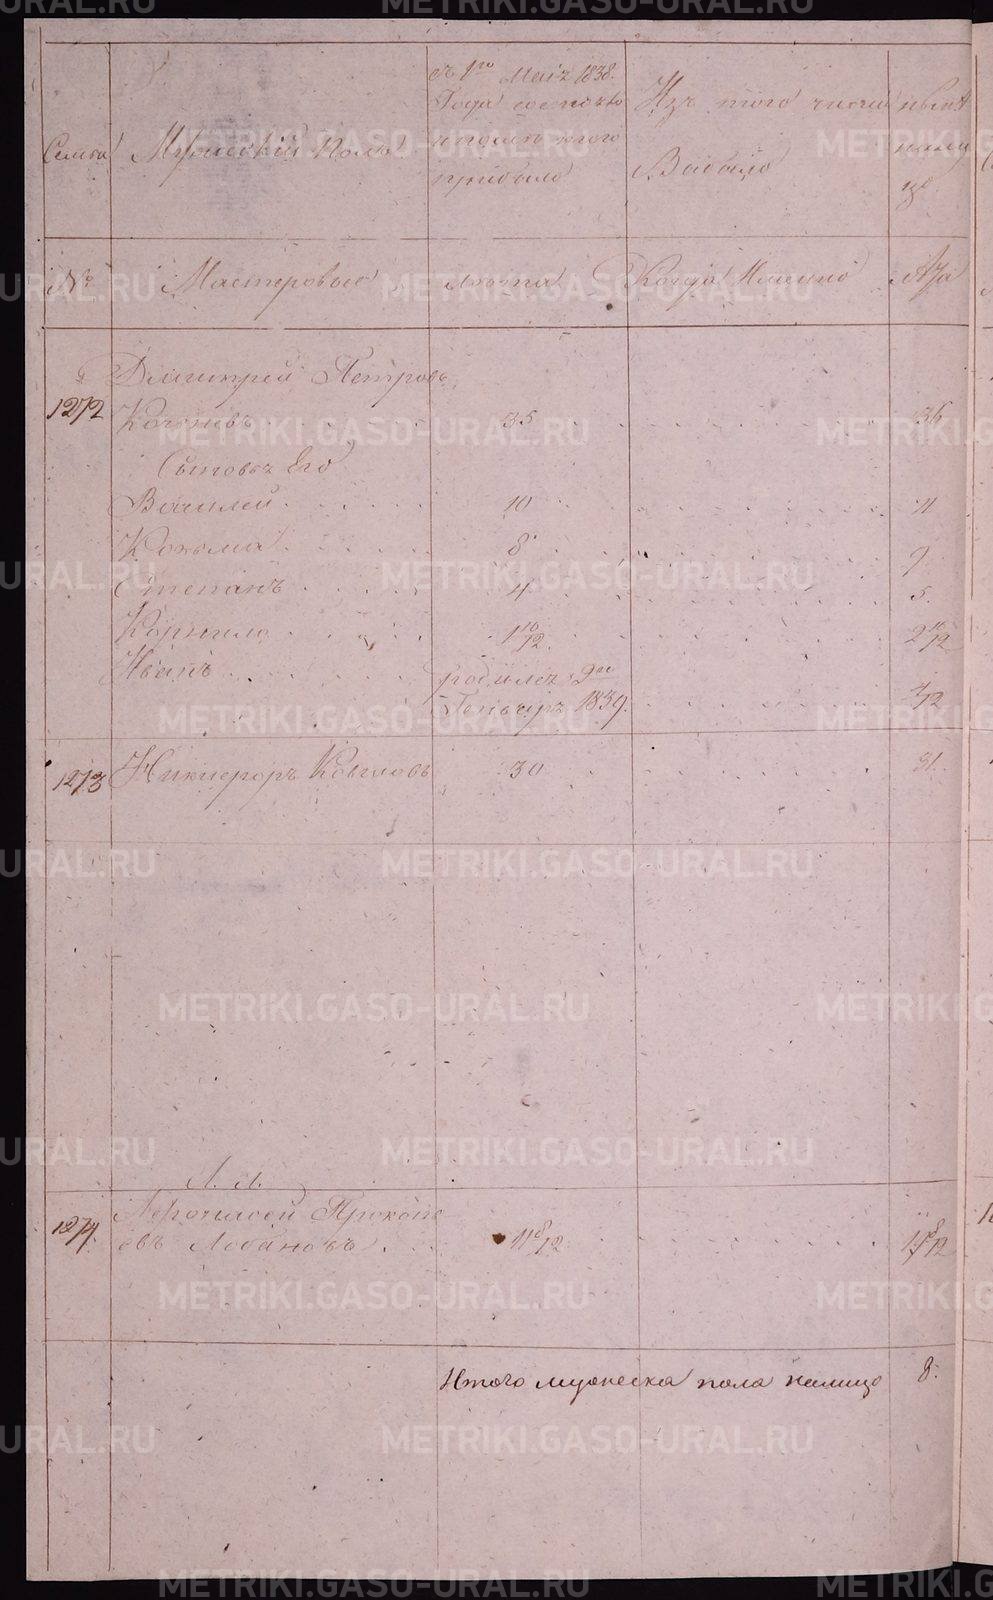 Семьи
Мужеский полъ
съ 1го Маiя 1838.
Года состояло
и после того
прибыло
Изъ того числа
Выбыло
ныне
на лицо
№
Мастеровые
Лета
Когда Именно
Лета
Дмитрей Петровъ
1272
35
36
Сыновья Его
Василей
10
11
Козьма
8
9
Степанъ
4
5.
Корнило
1 10/12.
2 10/12
Иванъ
родился 9го
Генваря 1839.
4/12
1273
Никифоръ
30
31
Л. Л.
1274.
Афонасей Прокопь
евъ Лобановъ
11 8/12
12 8/12
Итого мужеска пола налицо
8.
METRIKI.GASO-URAL.RU